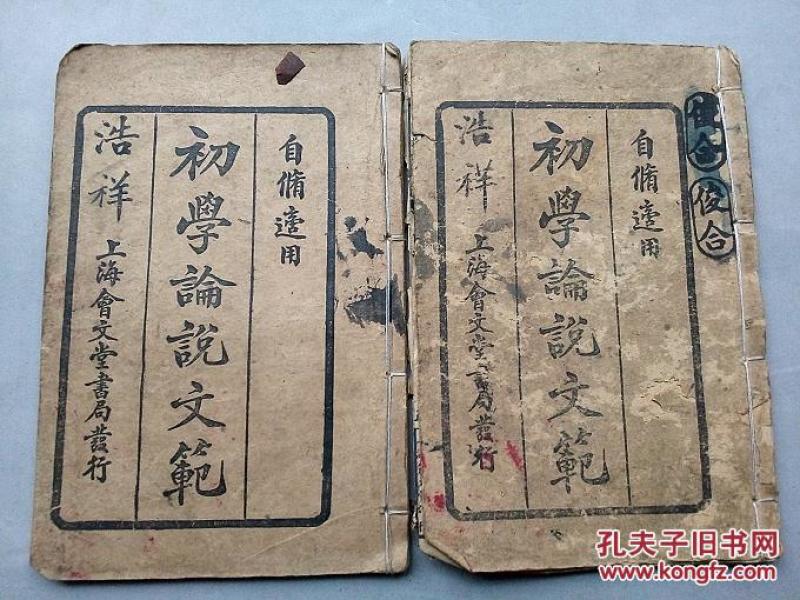 自脩適用
初學論說文範
浩祥
上海會文堂書局發行
俊合
自脩適用
初學論說文範
浩祥
上海會文堂書局發行
孔夫子旧书网
www.kongfz.com